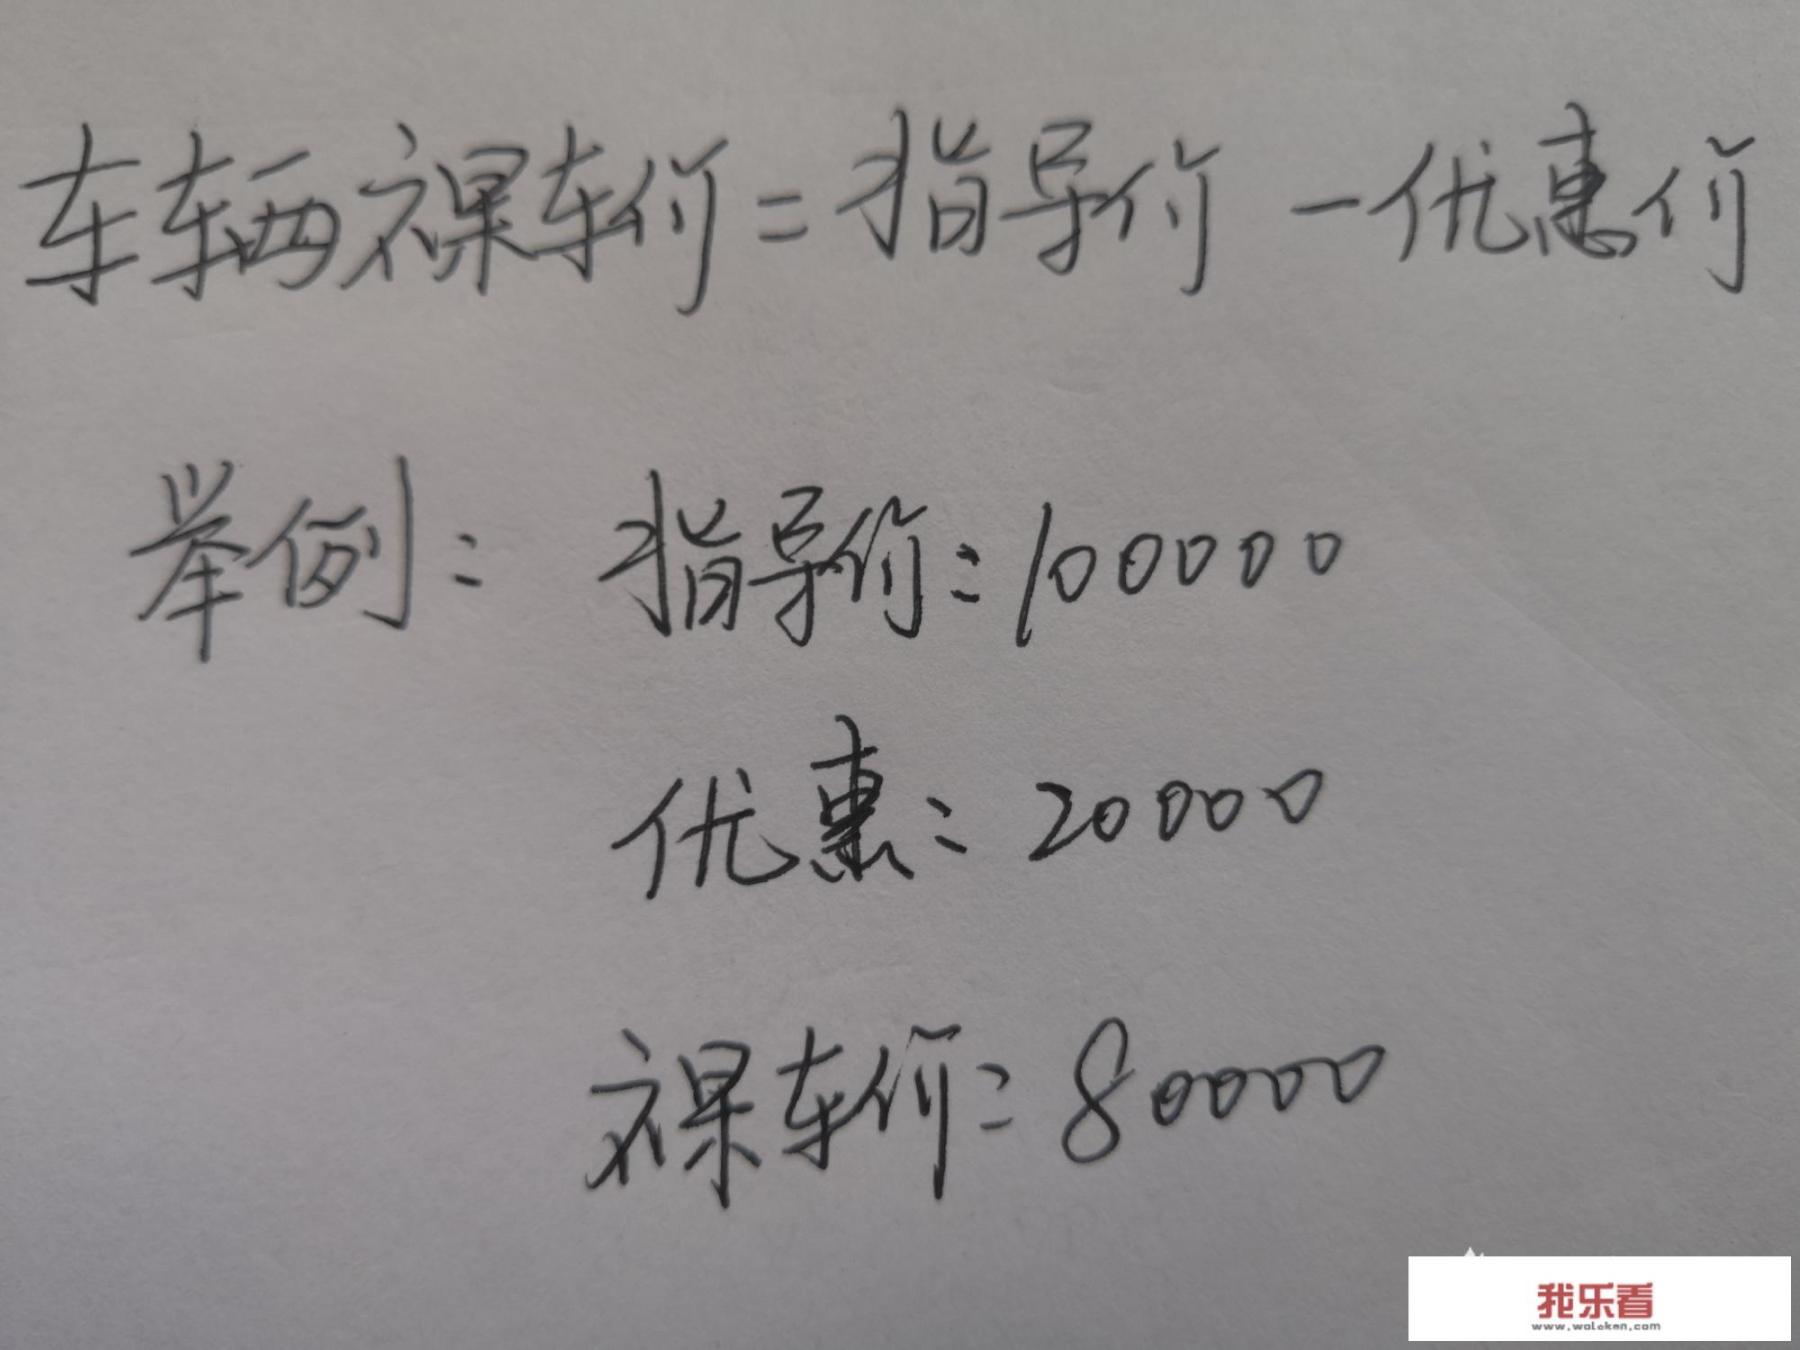 车辆裸车价=指导价-优惠价
举例: 指导价:100000
优惠:20000
裸车价:80000
我乐看
www.woleken.com